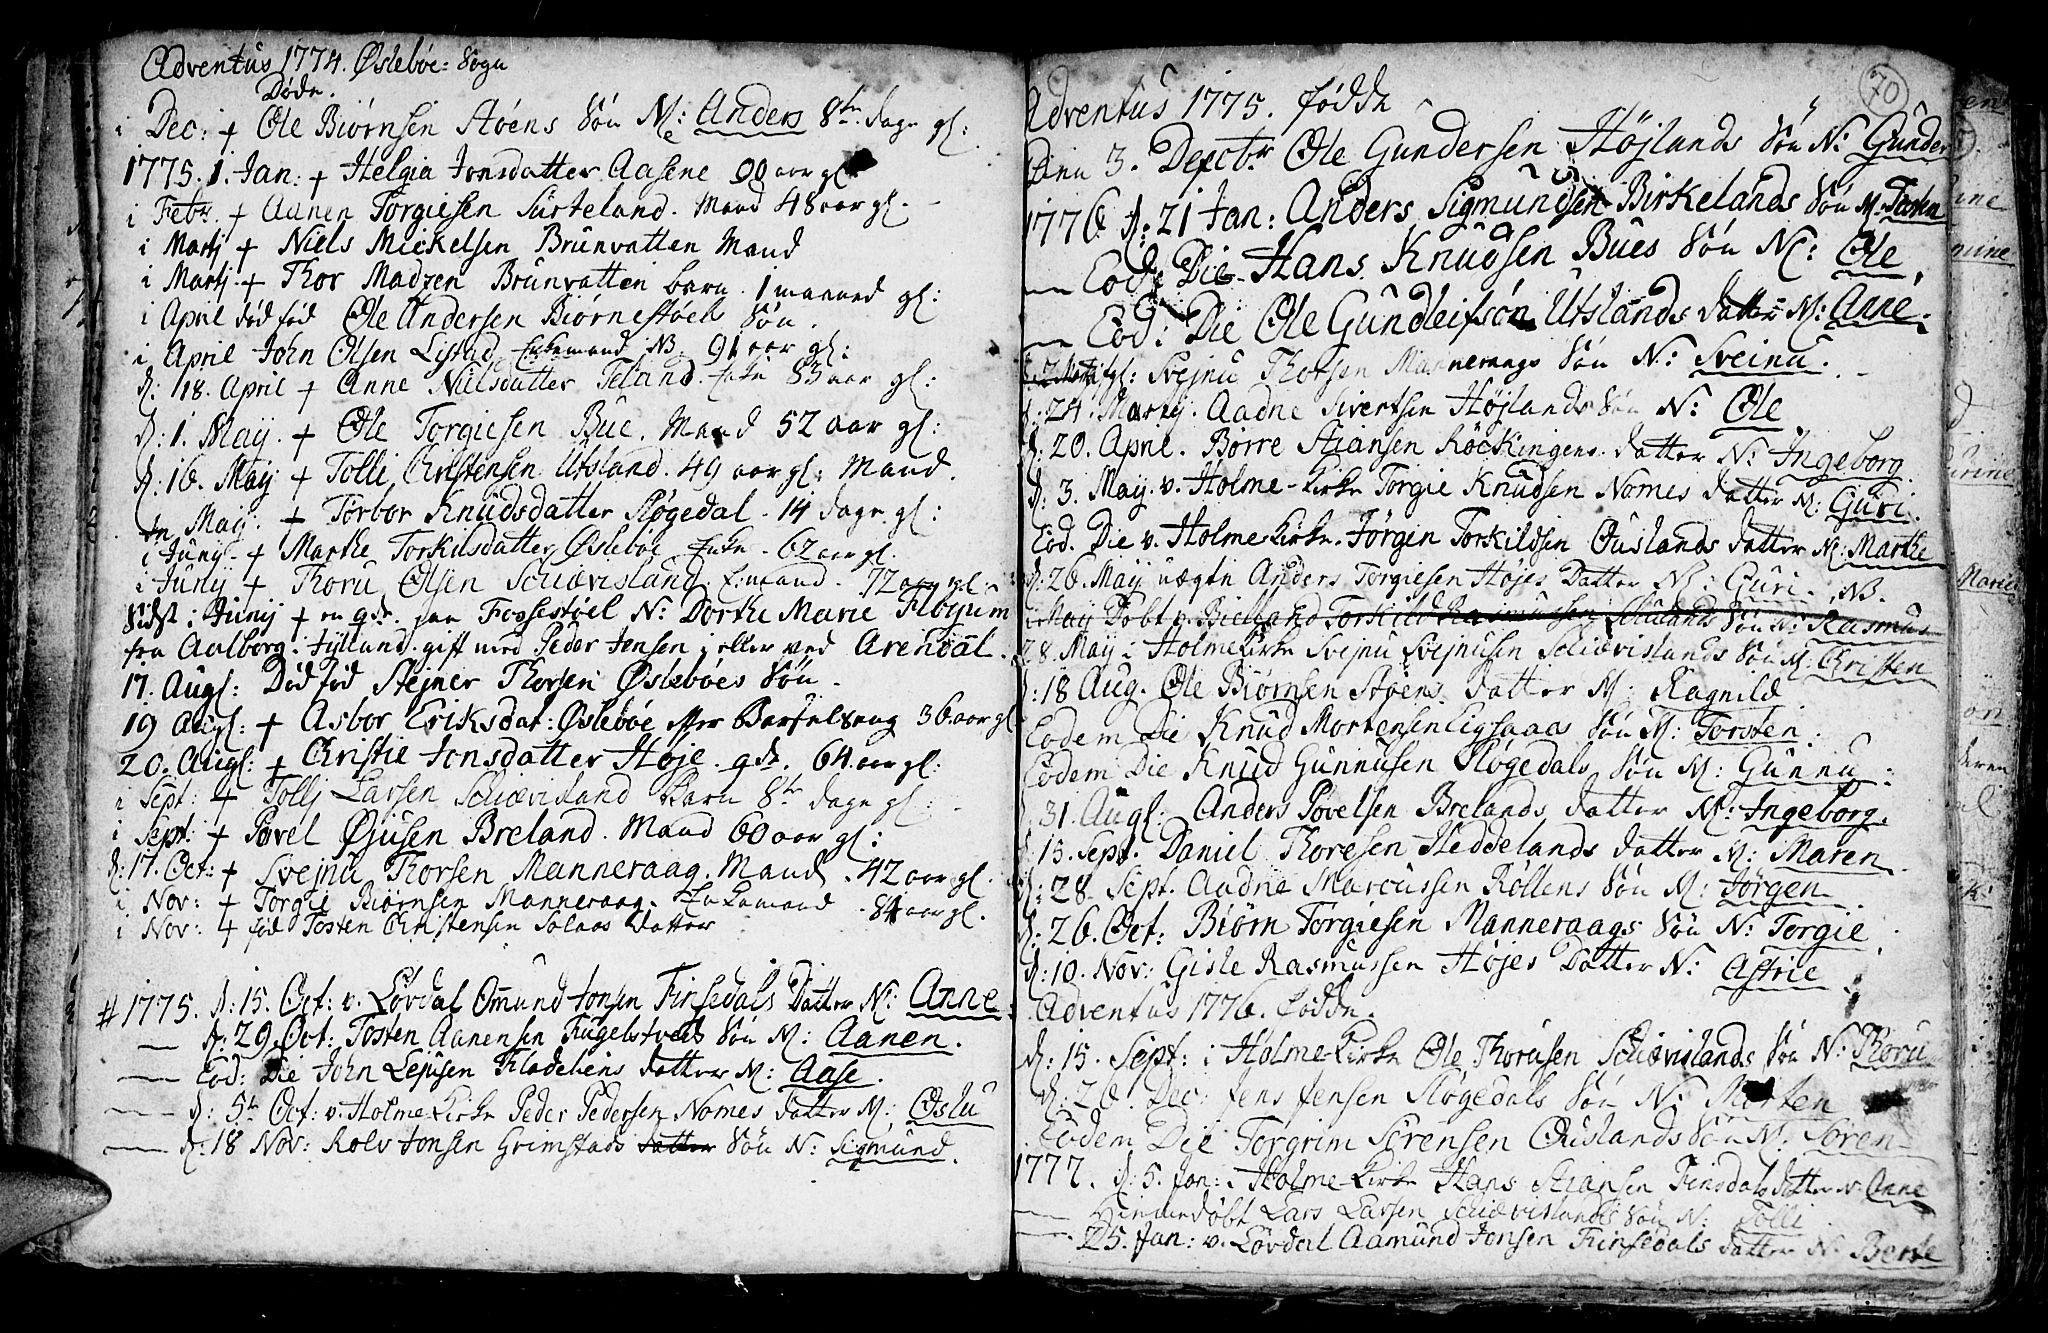 Adventus 1774. Øslebøe: Sogn
Døde.
i Dec: + Ole Biørnsen Støens Søn N: Anders 8te dage gl:
1775. 1. Jan: + Helgia Jonsdatter Aasene 90 aar gl
i Febr. + Aanen Torgiesen Surteland. Mand 48 aar gl.
i Martj + Niels Mickelsen Brunvatten Mand
i Martj + Thor Madzen Brunvatten barn. 1 maaned gl:
i April død fød Ole Andersen Biørnestøels Søn.
i April John Olsen Listad Enkemand NB. 91 aar gl:
d: 18. April + Anne Nielsdatter Teland. Enke 83 aar gl:
d: 1. May. + Ole Torgiesen Bue. Mand 52 aar gl:
d: 16. May + Tolli Christensen Utsland. 49 aar gl: Mand.
May. + Torbor Knudsdatter Røgedal. 14 dage gl:
i Junj. + Marthe Torkilsdatter Øslebøe Enke. 62 aar gl.
i Junj + Thoru Olsen Schiævisland. E:mand. 72 aar gl.
Sidst i Junj + en qde. paa Fossestøel N: Dorthe Marie
fra Aalborg i Jylland. gift med Peder Jensen i eller ved Arendal.
17. Augl: Død fød Stejner Thorsen Øslebøes Søn.
19 Augl: + Asbor Eriksdat: Øslebøe efter Barselseng 36 aar gl
20. Augl: + Christie Jonsdatter Høje. qde. 64 aar gl:
i Sept: + Tollj Larsen Schiævisland Barn 8te dage gl:
i Sept: + Povel Øjusen Breland. Mand 60 aar gl:
d: 17. Oct: + Svejnu Thorsen Manneraag. Mand. 42 aar gl.
i Nov: + Torgie Biørnsen Manneraag. Enkemand. 84 aar gl.
i Nov: + fød Tosten Christensen Solaas Datter
# 1775. d: 15. Oct: v. Løvdal Omund Jonsen Finsedals Datter N: Anne
— d: 29. Oct: Tosten Aanensen Kugelstveds Søn N: Aanen.
— Eod: Die John Lejusen Fladebens datter N: Aase.
— d: 5te Oct: v. Holme-Kirke Peder Pedersen Nomes datter N: Oslu
— d: 18 Nov: Rolv Jonsen Grimstads datter Søn N: Sigmund.
70
Adventus 1775. fødde
Dnn 3. Decbr Ole Gundersen Højlands Søn N: Gunder
1776. d: 21 Jan: Anders Sigmundsen Birkelands Søn N:
— Eod: Die Hans Knudsen Bues Søn N: Ole.
— Eod: Die Ole Gundleifson Utslands datter N: Anne.
Svejnu Thorsen Manneraags Søn N: Sveinu.
d: 24. Martj. Aadne Sivertsen Højlands Søn N: Ole
d: 20. April. Børre Stiansen Røckingens datter N: Ingeborg
d: 3. May. v. Holme-Kirke Torgie Knudsen Nomes datter N: Guri.
Eod. Die v. Holme Kirke. Jørgen Torkildsen Ouslands datter N: Marthe
d: 26. May uægte Anders Torgiesen Højes Datter N: Guri. NB.
i May Døbt v. Bielland Torkild Rasmussen Schulands Søn N: Rasmus
28. May i Holme Kirke Svejnu Svejnusen Schiævislands Søn N: Christen
d: 18 Aug. Ole Biørnsen Støens datter N: Ragnild
Eodem Die Knud Mortensen Eigsaaas Søn N: Torsten.
Eodem Die Knud Gunnusen Røgedals Søn N: Gunnu.
d: 31. Augl: Anders Povelsen Brelands datter N: Ingeborg.
d: 15. Sept. Daniel Thoresen Heddelands datter N: Maren.
d: 28. Sept. Audne Marcussen Rollens Søn N: Jørgen
d: 26. Oct: Biørn Torgiesen Manneraags Søn N: Torgie.
d: 10. Nov: Gisle Rasmussen Højes Datter N: Astrie
Adventus 1776. Fødde.
d: 15. Sept: i Holme-Kirke Ole Thorusen Schiævislands Søn N: Thoru
d: 26. Dec: Jens Jensen Røgedals Søn N: Morten
Eodem Die Torgrim Sørensen Ouslands Søn N: Søren
1777. d: 5. Jan: i Holme-Kirke Hans Stiansen Finsdals datter N: Anne
— Hiemmedøbt Lars Larsen Schiævislands Søn N: Tolli
— 25. Jan: v. Løvdal Aamund Jonsen Finsedals datter N: Berte